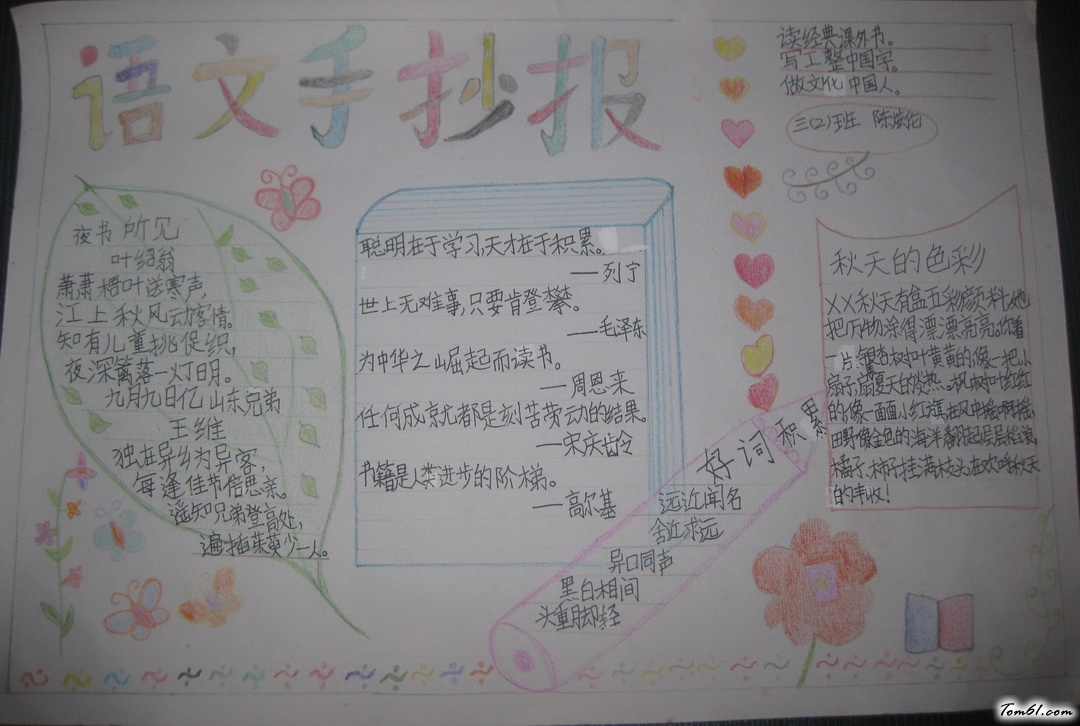 语文手抄报
读经典课外书。
写工整中国字。
做文化中国人。
三(2)班 陈
夜书所见
叶绍翁
萧萧梧叶送寒声,
江上秋风动客情。
知有儿童挑促织,
夜深篱落一灯明。
九月九日忆山东兄弟
王维
独在异乡为异客,
每逢佳节倍思亲。
遥知兄弟登高处,
遍插茱萸少一人。
聪明在于学习,天才在于积累。
——列宁
世上无难事,只要肯登攀。
——毛泽东
为中华之崛起而读书。
——周恩来
任何成就都是刻苦劳动的结果。
——宋庆龄
书籍是人类进步的阶梯。
——高尔基
好词积累
远近闻名
舍近求远
异口同声
黑白相间
头重脚轻
秋天的色彩
XX秋天有盒五彩颜料,她
把万物涂得漂漂亮亮。你看
一片银杏树叶黄黄的像一把小
扇子,扇夏天的炎热。枫树叶红红
的像一面面小红旗在风中摇啊摇,
田野像金色的海洋翻起层层
橘子、柿子挂满枝头在欢唱秋天
的丰收!
Tom61.com